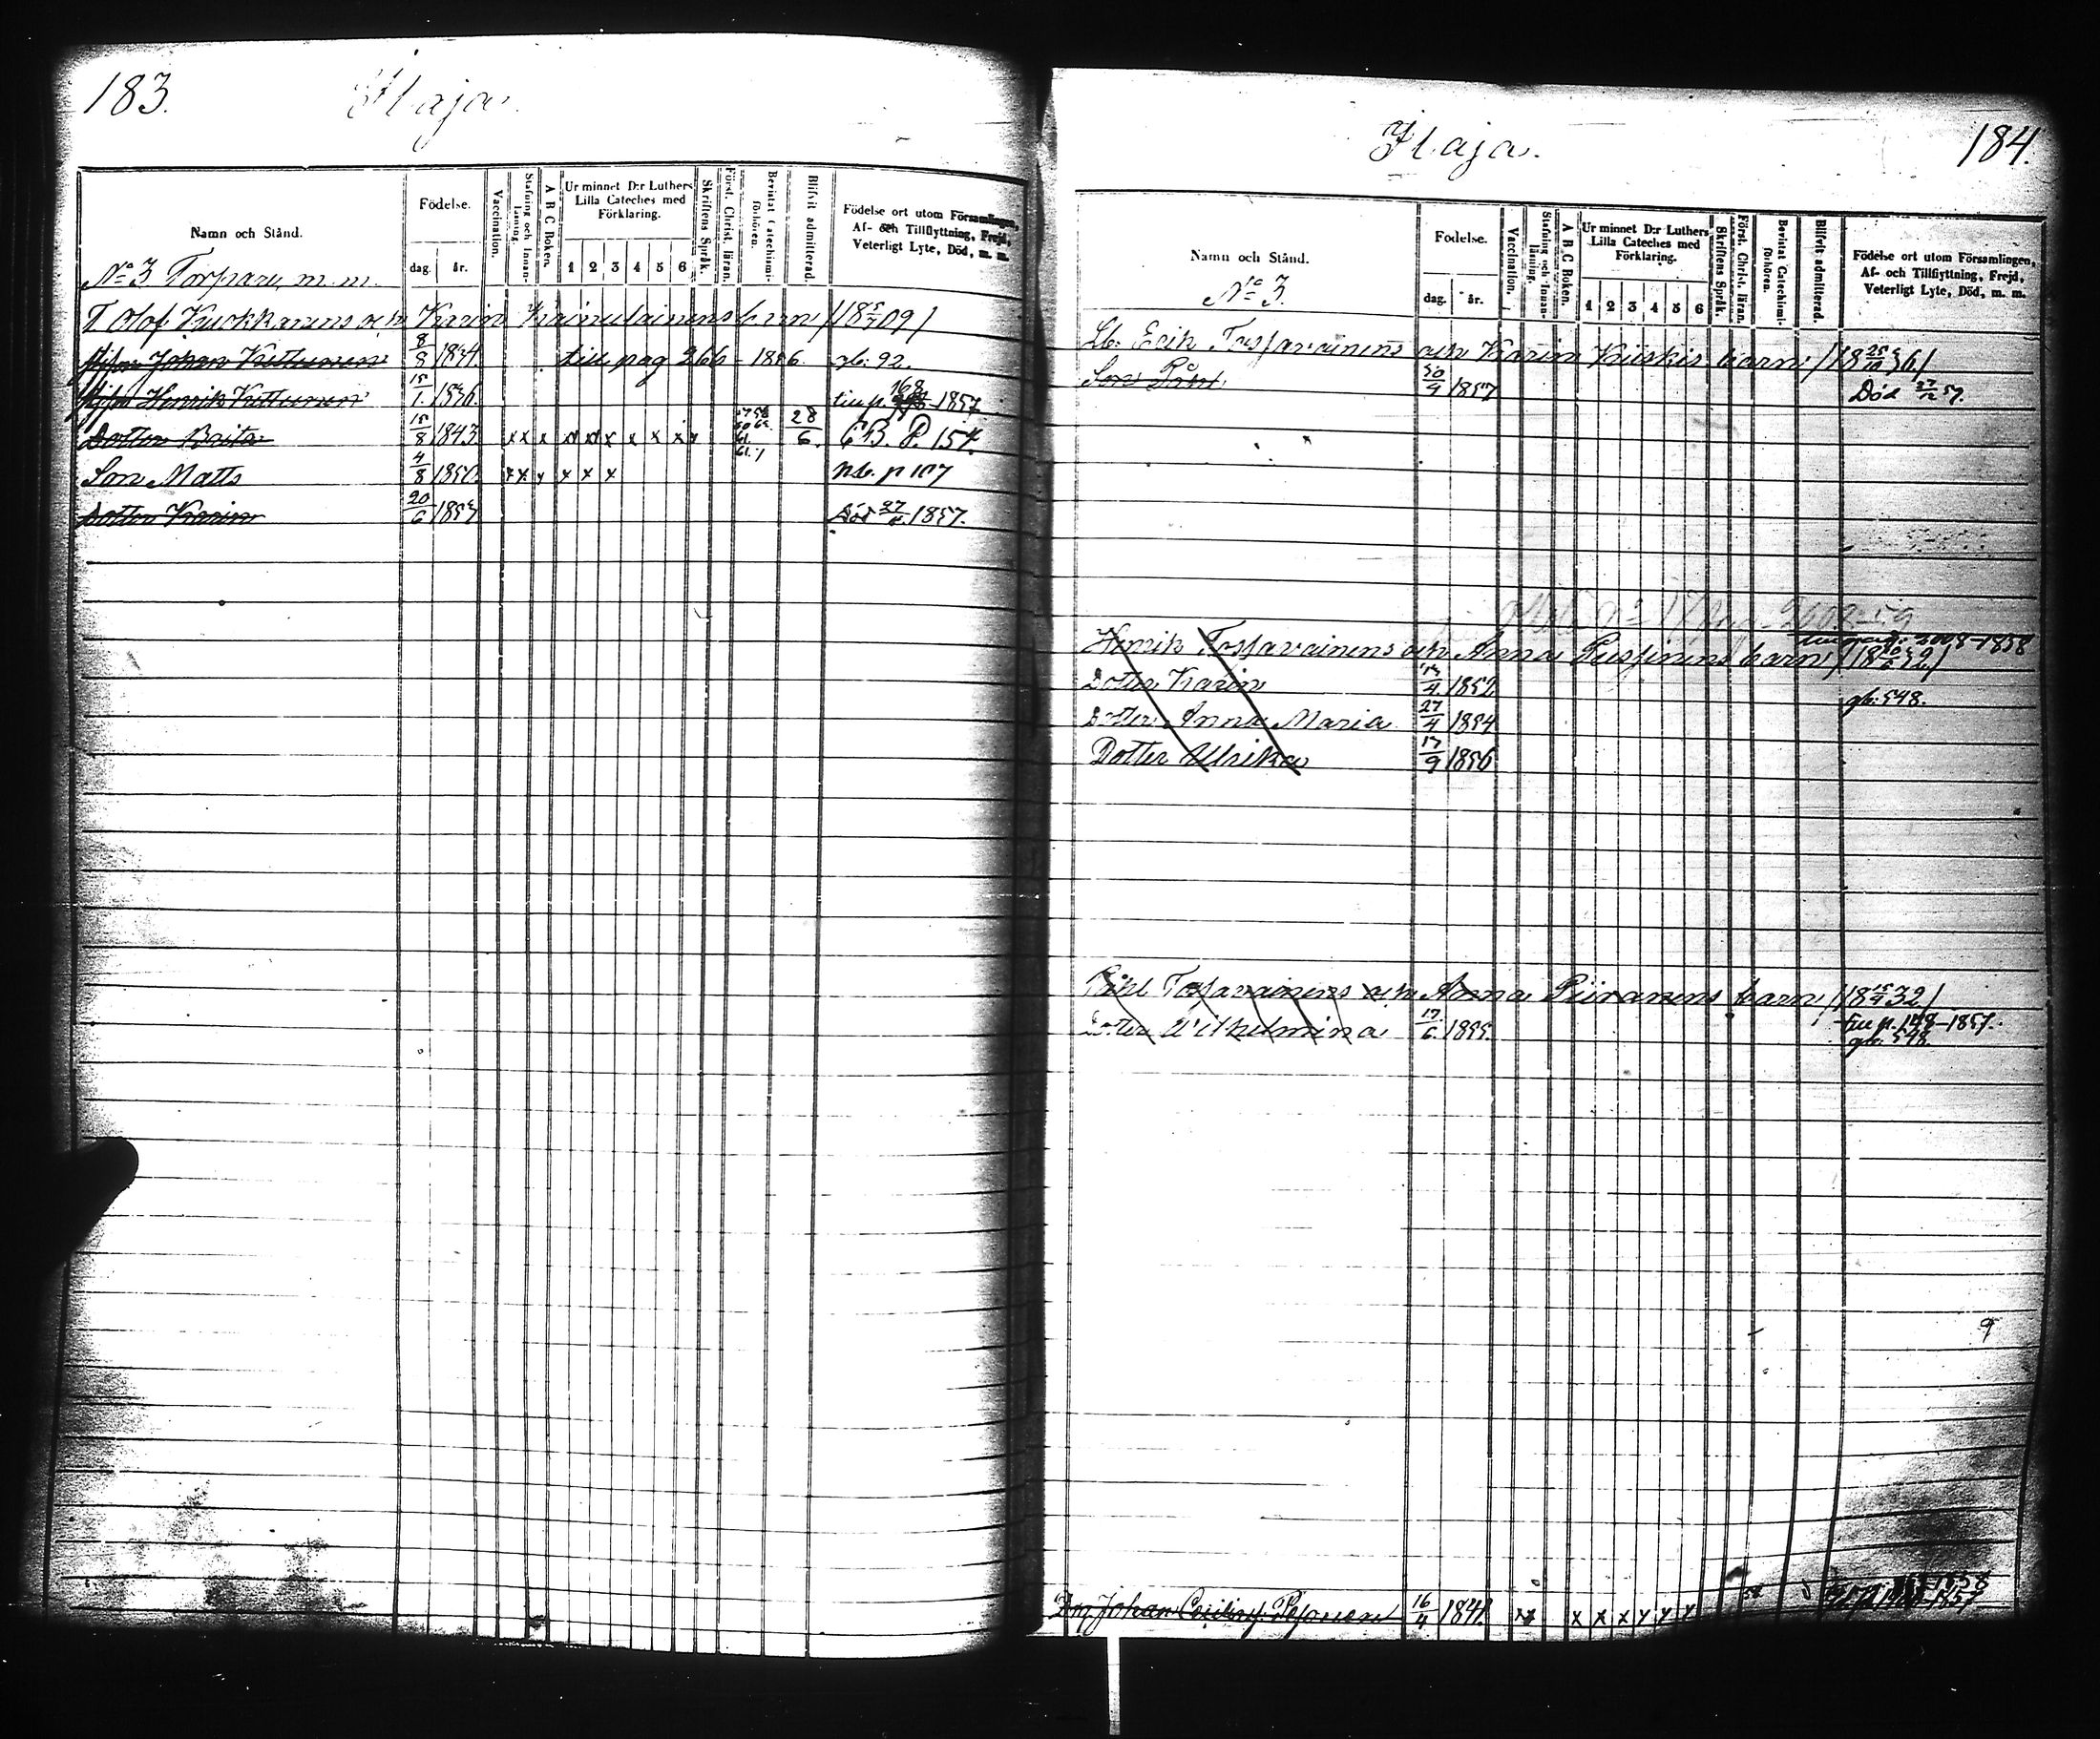 183.
Ilaja.
Namn och Stånd.
Födelse.
dag. år.
Vaccination.
Stafning och Innanläsning.
A B C Boken.
Ur minnet D:r Luthers Lilla Cateches med Förklaring.
1 2 3 4 5 6
Skriftens Språk.
Först. Christ. läran.
Bevistat Catechismiförhören.
Blifvit admitterad.
Födelse ort utom Församlingen, Af- och Tillflyttning, Frejd, Veterligt Lyte, Död, m. m.
No 3 Torpare, m. m.
T Olof Kuokkanens och Karin Kainulainens barn /18 5/7 09/
Johan Kettunen 8/8 1834. till pag 266 - 1886. gb. 92.
Henrik Kettunen 15/1. 1836. 168 1857
Dotter Brita 15/8 1843 x x x x x x x x x x 28/6. CB. P. 154.
Son Matts 4/8 1850 x x x x x x nb. p 107
Dotter Karin 20/6 1857 Död 1857.
Ilaja.
184.
Namn och Stånd.
Födelse.
dag. år.
Vaccination.
Stafning och Innanläsning.
A B C Boken.
Ur minnet D:r Luthers Lilla Cateches med Förklaring.
1 2 3 4 5 6
Skriftens Språk.
Först. Christ. läran.
Bevistat Catechismiförhören.
Blifvit admitterad.
Födelse ort utom Församlingen, Af- och Tillflyttning, Frejd, Veterligt Lyte, Död, m. m.
No 3.
Lb. Erik Tossavainens och Karin Kiiskis barn
Son Påhl 30/9 1857 Död 27/12 57.
1858
Henrik Tossavainens och Anna Pussinens barn
Dotter Karin 1852 gb. 548.
Dotter Anna Maria 27/4 1854
Dotter Ulrika 17/9 1856
Påhl Tossavainens och Anna Piiranens barn /18 15/4 32/
Dotter Wilhelmina 17/6. 1855. 148-1857.
gb. 548.
Johan Pesonen 16/4 1841. x x x x x x